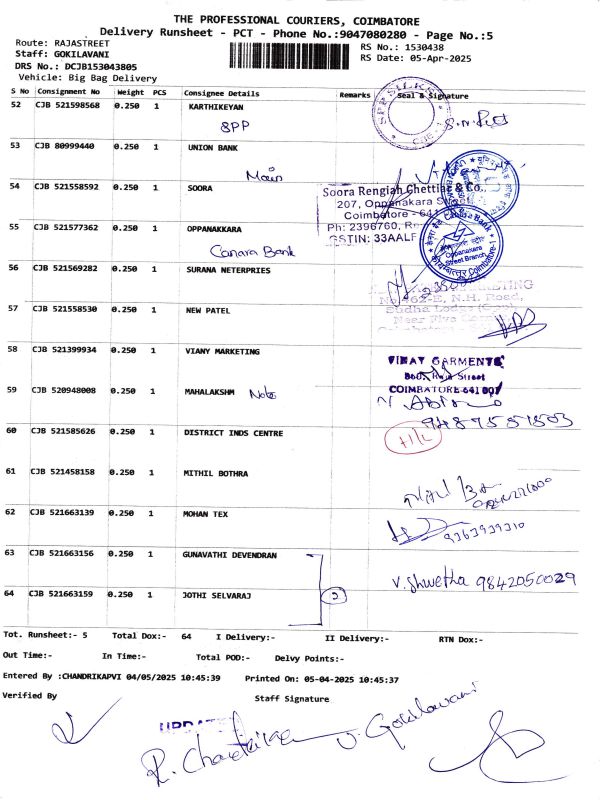 THE PROFESSIONAL COURIERS, COIMBATORE
Delivery Runsheet - PCT - Phone No.:9047080280 - Page No.:5
Route: RAJASTREET
RS No.: 1530438
Staff: GOKILAVANI
RS Date: 05-Apr-2025
DRS No.: DCJB153043805
Vehicle: Big Bag Delivery
S No Consignment No Weight PCS Consignee Details Remarks Seal & Signature
52 CJB 521598568 0.250 1 KARTHIKEYAN
SPP
53 CJB 80999440 0.250 1 UNION BANK
Main
54 CJB 521558592 0.250 1 SOORA
Soora Rengiah Chettiar & Co.,
207, Oppanakara Street
Coimbatore - 641
Ph: 2396760, Re
GSTIN: 33AALF
55 CJB 521577362 0.250 1 OPPANAKKARA
Canara Bank
Canara Bank
Oppanakara
Street Branch
56 CJB 521569282 0.250 1 SURANA NETERPRIES
57 CJB 521558530 0.250 1 NEW PATEL
62-E, N.H. Road,
58 CJB 521399934 0.250 1 VIANY MARKETING
VINAY GARMENTS
Raja Street
COIMBATORE-641 001
59 CJB 520948008 0.250 1 MAHALAKSHM Note
9487581503
60 CJB 521585626 0.250 1 DISTRICT INDS CENTRE
61 CJB 521458158 0.250 1 MITHIL BOTHRA
62 CJB 521663139 0.250 1 MOHAN TEX
9363939310
63 CJB 521663156 0.250 1 GUNAVATHI DEVENDRAN
V. Shwetha 9842050029
64 CJB 521663159 0.250 1 JOTHI SELVARAJ
Tot. Runsheet:- 5 Total Dox:- 64 I Delivery:- II Delivery:- RTN Dox:-
Out Time:- In Time:- Total POD:- Delvy Points:-
Entered By :CHANDRIKAPVI 04/05/2025 10:45:39 Printed On: 05-04-2025 10:45:37
Verified By Staff Signature
UPDATED
R. Chandrika V. Gokilavani